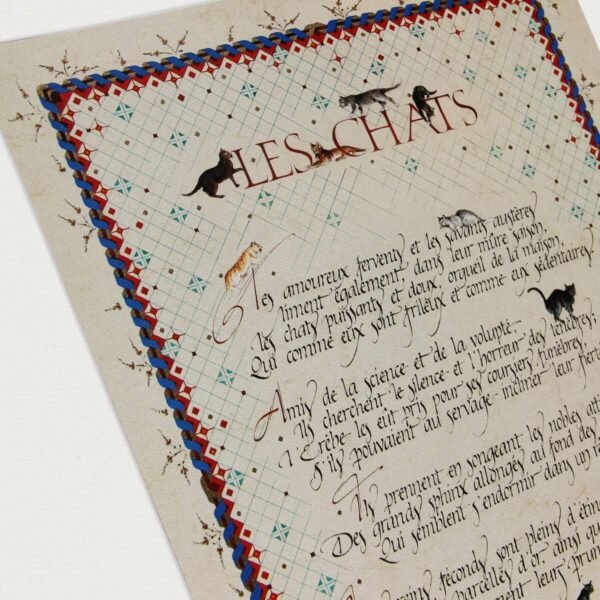 LES CHATS
Les amoureux fervents et les savants austères
Aiment également, dans leur mûre saison,
Les chats puissants et doux, orgueil de la maison,
Qui comme eux sont frileux et comme eux sédentaires
Amis de la science et de la volupté
Ils cherchent le silence et l'horreur des ténèbres;
L'Erèbe les eut pris pour ses coursiers funèbres,
S'ils pouvaient au servage incliner leur fierté
Ils prennent en songeant les nobles atti
Des grands sphinx allongés au fond des
Qui semblent s'endormir dans un r
reins féconds sont pleins d'ét
parcelles d'or, ainsi qu
ent leur prun